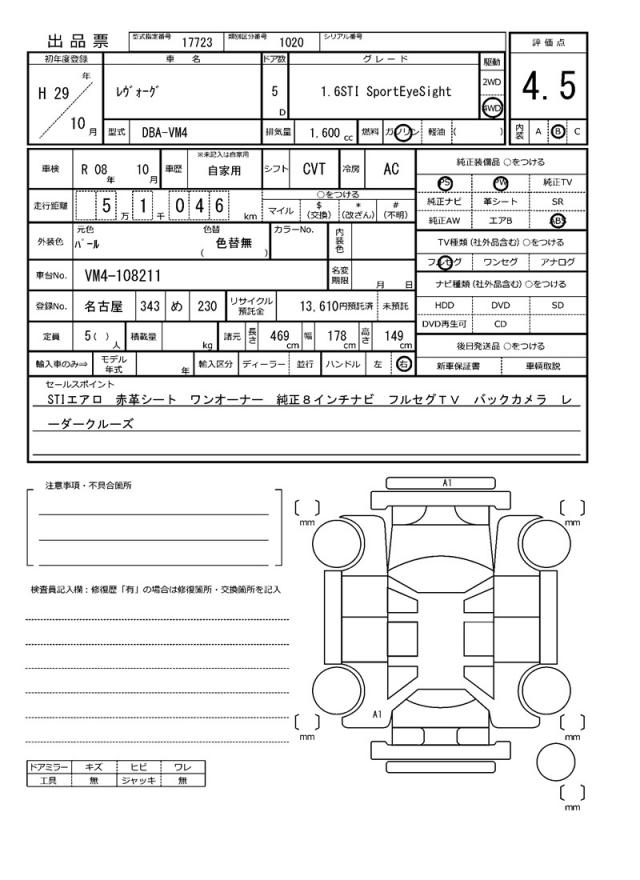 出品票 型式指定番号 17723 類別区分番号 1020 シリアル番号
初年度登録 車名 ドア数 グレード 駆動 評価点
H 29 年 10 月 ﾚｳﾞｫｰｸﾞ 5 D 1.6STI SportEyeSight 2WD 4WD 4.5
型式 DBA-VM4 排気量 1.600 cc 燃料 ガソリン 軽油 ( ) 内装 A B C
車検 R 08 年 10 月 車歴 ※未記入は自家用 自家用 シフト CVT 冷房 AC
純正装備品 ○をつける
PS PW 純正TV
走行距離 5 万 1 千 0 4 6 km ○をつける
マイル $ (交換) * (改ざん) # (不明)
純正ナビ 革シート SR
純正AW エアB ABS
外装色 元色 ﾊﾟｰﾙ 色替 ( 色替無 ) カラーNo. 内装色
TV種類 (社外品含む) ○をつける
フルセグ ワンセグ アナログ
車台No. VM4-108211 名変期限 月 日
ナビ種類 (社外品含む) ○をつける
登録No. 名古屋 343 め 230 リサイクル預託金 13,610円預託済 未預託
HDD DVD SD
DVD再生可 CD
定員 5( ) 人 積載量 kg 諸元 長さ 469 cm 幅 178 cm 高さ 149 cm
後日発送品 ○をつける
輸入車のみ⇒ モデル年式 年 輸入区分 ディーラー 並行 ハンドル 左 右
新車保証書 車輌取説
セールスポイント
STIエアロ 赤革シート ワンオーナー 純正８インチナビ フルセグＴＶ バックカメラ レ
ーダークルーズ
注意事項・不具合箇所
A1
mm
mm
検査員記入欄：修復歴「有」の場合は修復箇所・交換箇所を記入
A1
mm
mm
ドアミラー キズ ヒビ ワレ
工具 無 ジャッキ 無
mm